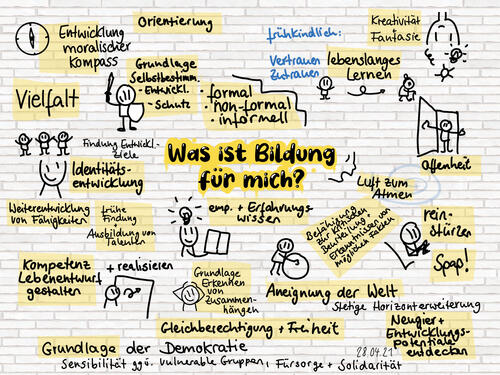 Orientierung
Entwicklung
moralischer
Kompass
frühkindlich:
Vertrauen
Zutrauen
Kreativität
+ Fantasie
Grundlage
Selbstbestimm.
- Entwickl.
- Schutz
• formal
• non-formal
• informell
lebenslanges
Lernen
Vielfalt
Findung Entwickl.-
ziele
Identitäts-
entwicklung
Was ist Bildung
für mich?
Offenheit
Luft zum
Atmen
Weiterentwicklung
von Fähigkeiten
frühe
Findung
Ausbildung von
Talenten
emp. + Erfahrungs-
wissen
Befähigung
zur kritischen
Beurteilung +
Erkenntnissen von
möglichen Fakten
rein-
stürzen
Spaß!
Kompetenz
Lebensentwurf
gestalten
+ realisieren
Grundlage
Erkennen
von
Zusammen-
hängen
Aneignung der Welt
stetige Horizonterweiterung
Gleichberechtigung + Freiheit
Neugier +
Entwicklungs-
potentiale
entdecken
Grundlage der Demokratie
28.04.21
Sensibilität ggü. vulnerable Gruppen, Fürsorge + Solidarität